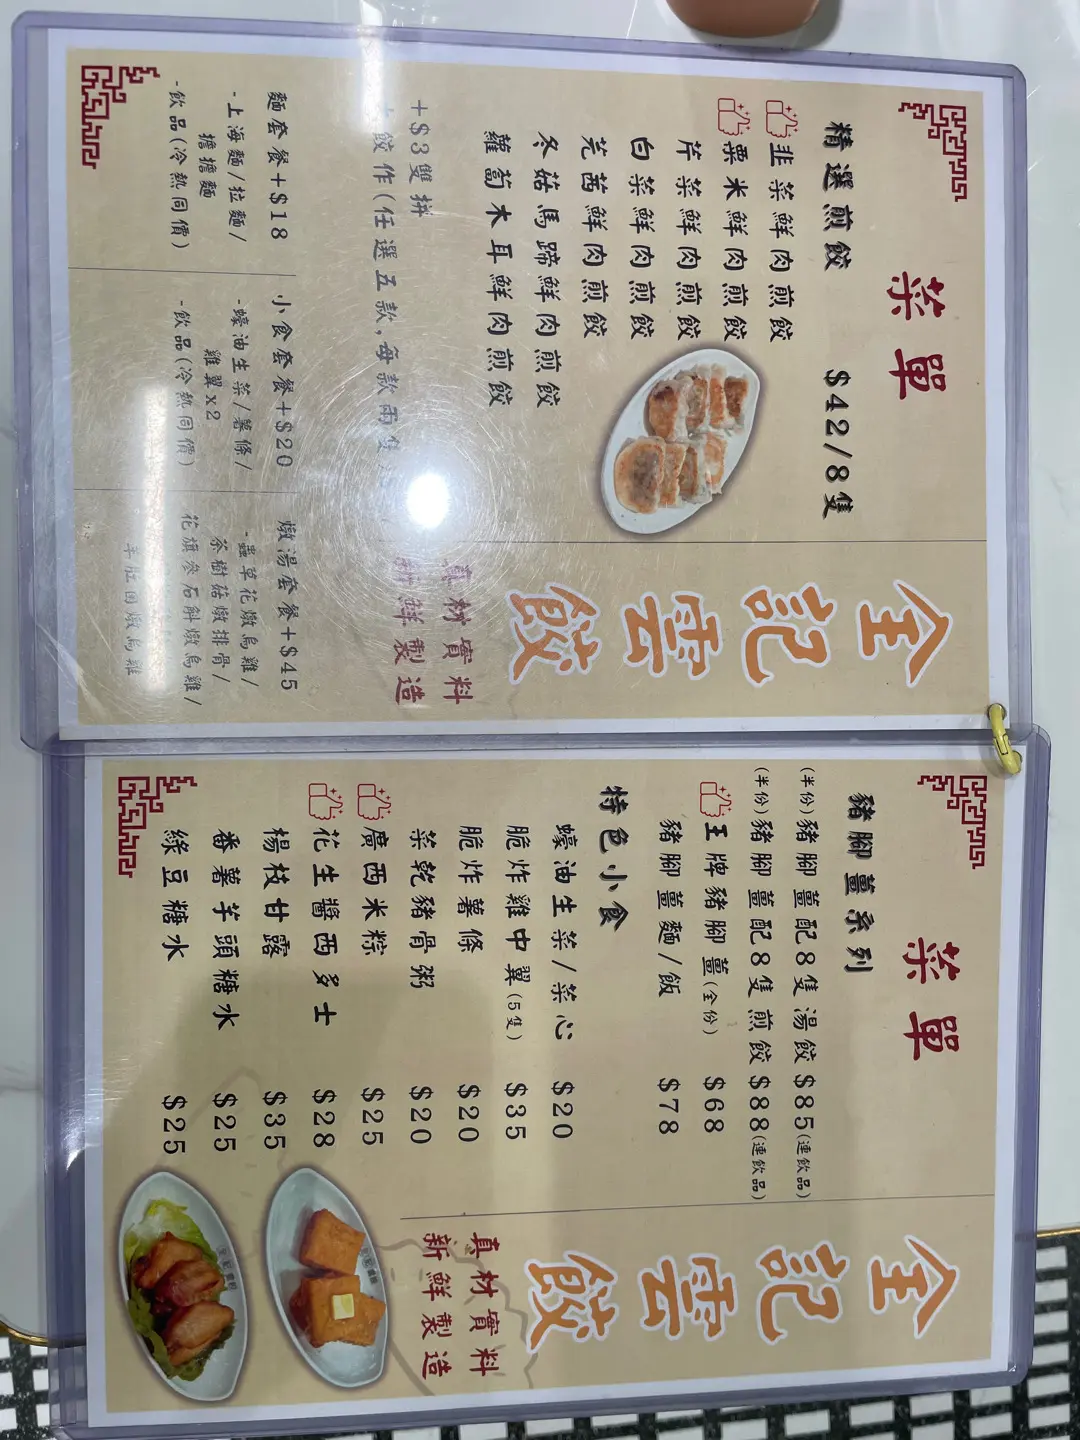 菜單
精選煎餃 $42/8隻
韭菜鮮肉煎餃
粟米鮮肉煎餃
芹菜鮮肉煎餃
白菜鮮肉煎餃
芫茜鮮肉煎餃
冬菇馬蹄鮮肉煎餃
蘿蔔木耳鮮肉煎餃
+$3雙拼
餃作(任選五款,每款兩隻
麵套餐+$18
-上海麵/拉麵/
擔擔麵
-飲品(冷熱同價)
小食套餐+$20
-蠔油生菜/薯條/
雞翼x2
-飲品(冷熱同價)
燉湯套餐+$45
-蟲草花燉烏雞/
茶樹菇燉排骨/
花旗參石斛燉烏雞/
羊肚菌燉烏雞
金記雲餃
真材實料
新鮮製造
菜單
豬腳薑系列
(半份)豬腳薑配8隻湯餃 $85(連飲品)
(半份)豬腳薑配8隻煎餃 $88(連飲品)
王牌豬腳薑(全份) $68
豬腳薑麵/飯 $78
特色小食
蠔油生菜/菜心 $20
脆炸雞中翼(5隻) $35
脆炸薯條 $20
菜乾豬骨粥 $20
廣西米粽 $25
花生醬西多士 $28
楊枝甘露 $35
番薯芋頭糖水 $25
綠豆糖水 $25
金記雲餃
真材實料
新鮮製造